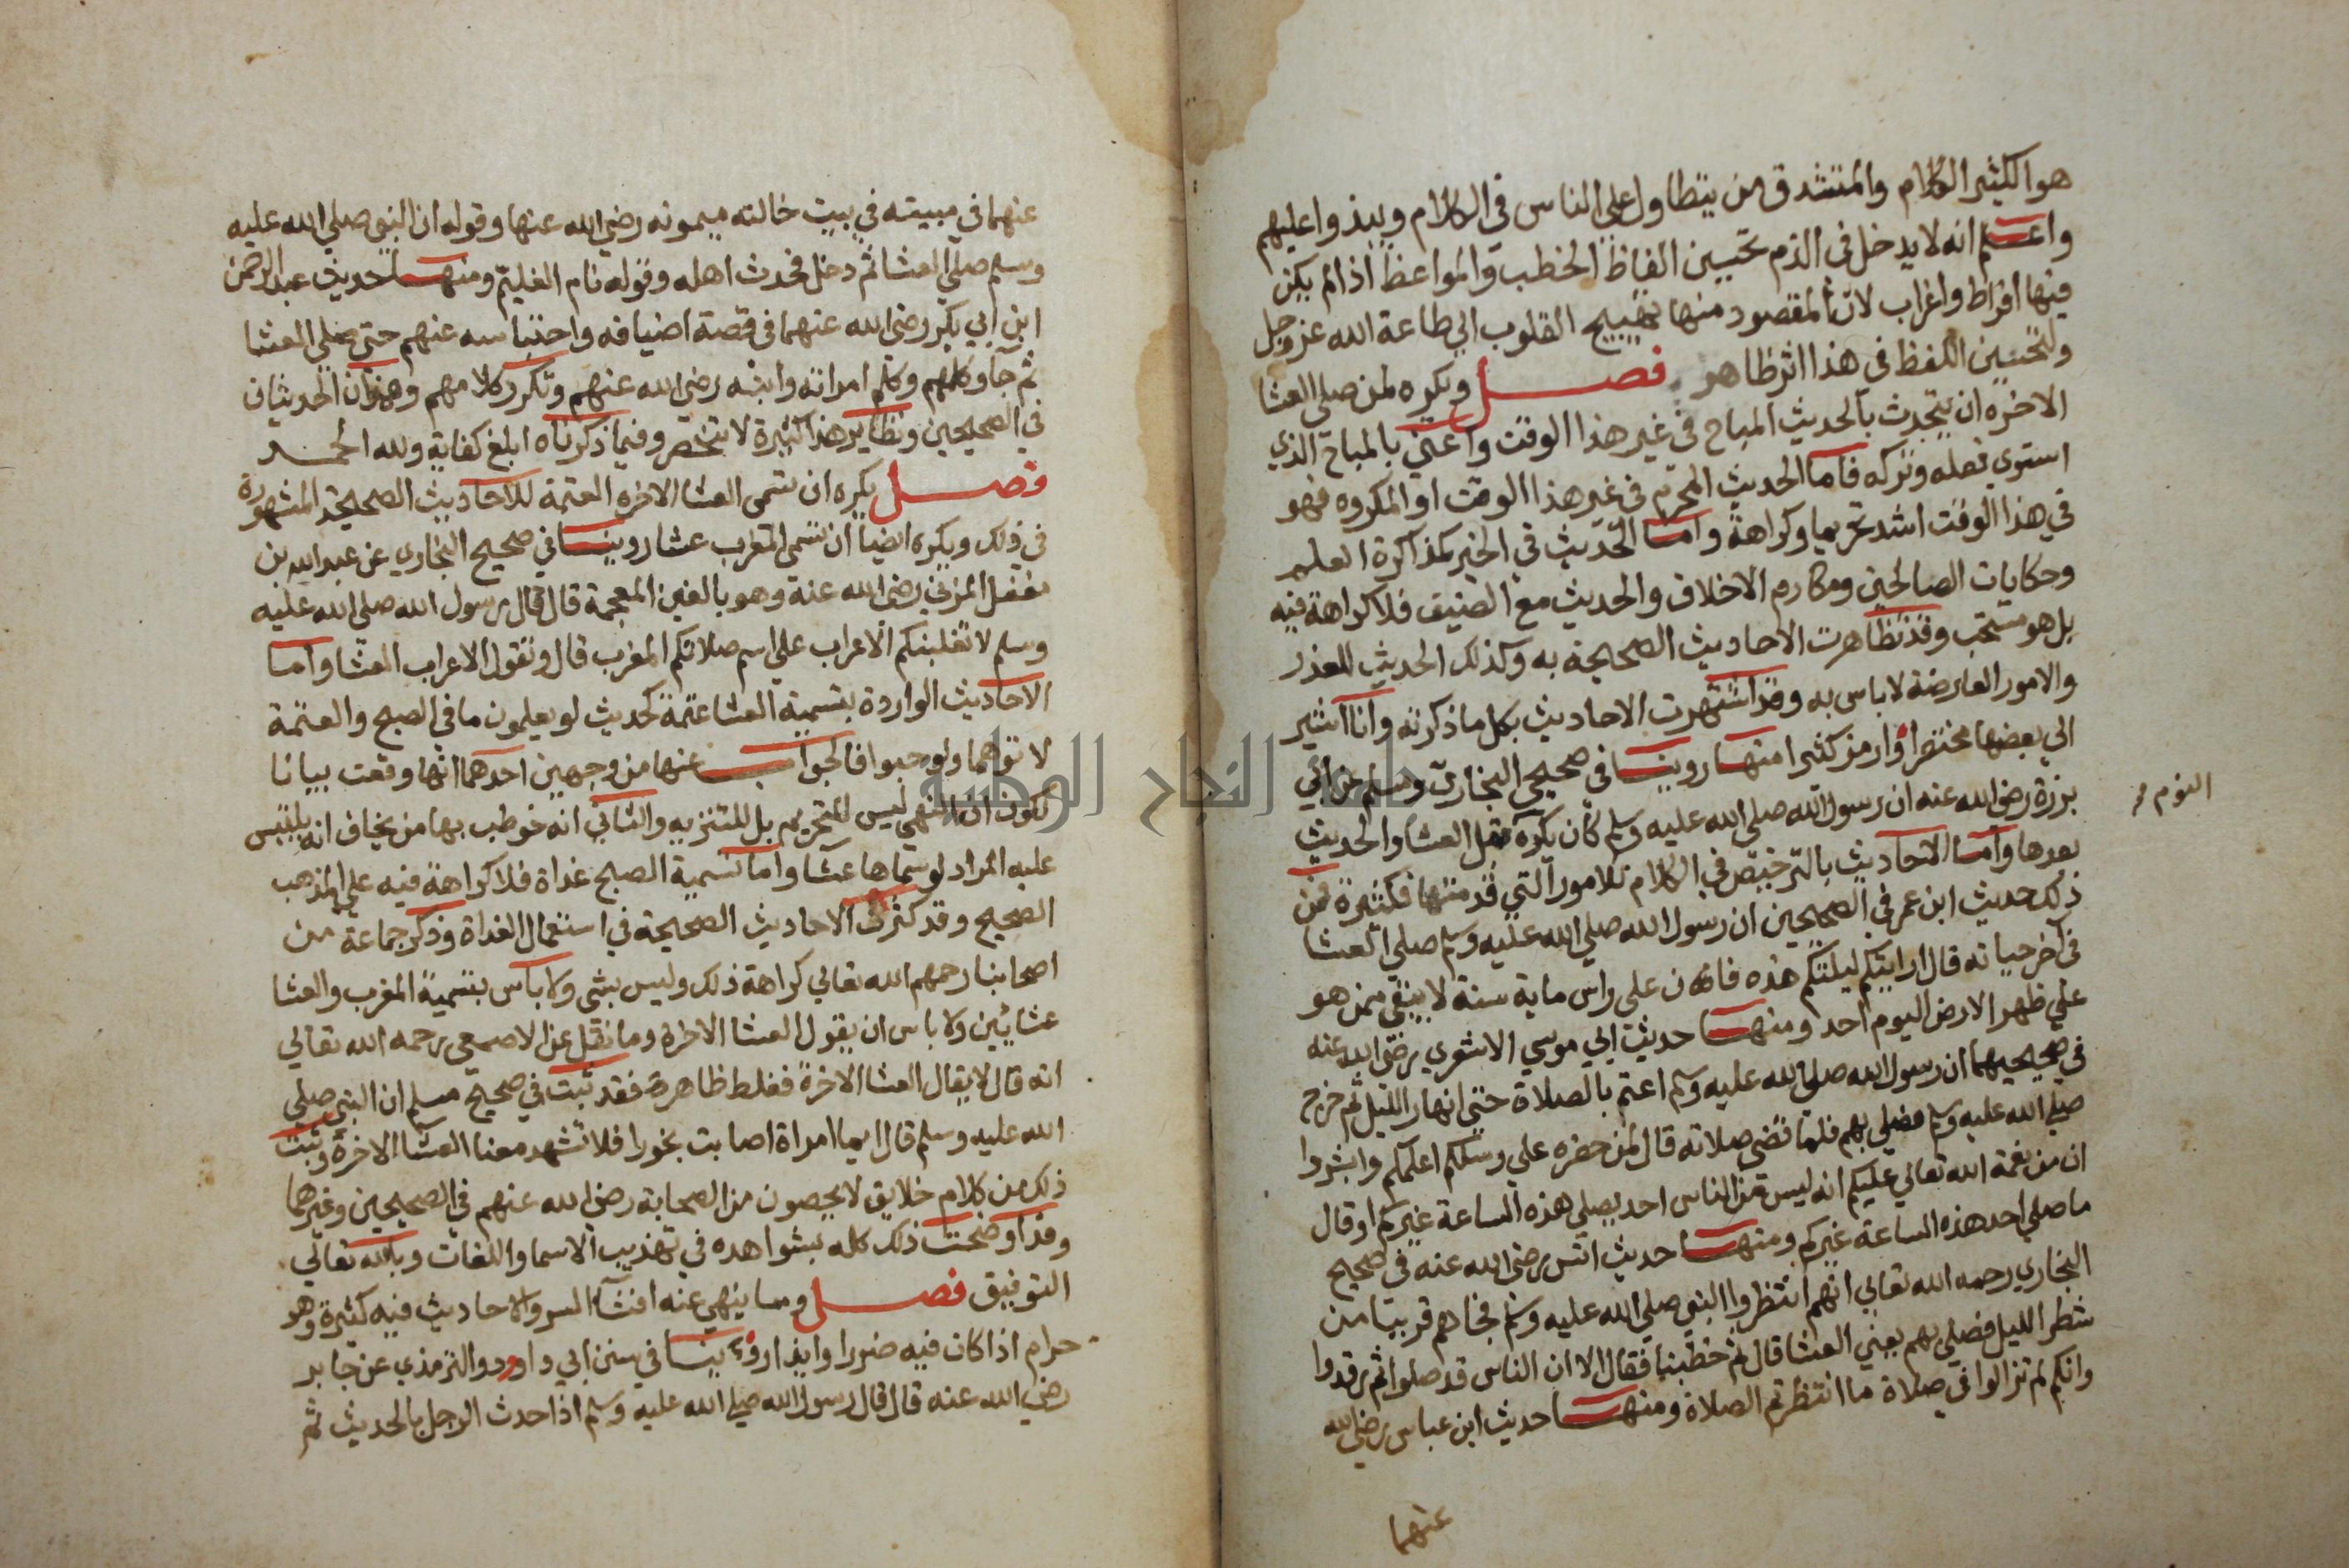 هو الكثير الكلام والمتشدق من يتطاول علي الناس في الكلام ويبذوا عليهم
واعلم انه لا يدخل في الذم تحسين الفاظ الخطب والمواعظ اذا لم يكن
فيها افراط واغراب لان المقصود منها تهييج القلوب الي طاعة الله عز وجل
ولتحسين اللفظ في هذا اثر ظاهر فصل ويكره لمن صلي العشا
الاخره ان يتحدث بالحديث المباح في غير هذا الوقت واعني بالمباح الذي
استوي فعله وتركه فاما الحديث المحرم في غير هذا الوقت او المكروه فهو
في هذا الوقت اشد تحريما وكراهة واما الحديث في الخير كمذاكرة العلم
وحكايات الصالحين ومكارم الاخلاق والحديث مع الضيف فلا كراهة فيه
بل هو مستحب وقد تظاهرت الاحاديث الصحيحة به وكذلك الحديث للعذر
والامور العارضة لا باس به وقد اشتهرت الاحاديث بكل ما ذكرته وانا اشير
الي بعضها مختصرا وارمز كثيرا منها روينا في صحيحي البخاري ومسلم عن ابي
برزة رضي الله عنه ان رسول الله صلي الله عليه وسلم كان يكره قبل العشا والحديث
النوم
بعدها واما الاحاديث بالترخيص في الكلام للامور التي قدمتها فكثيرة فمن
ذلك حديث ابن عمر في الصحيحين ان رسول الله صلي الله عليه وسلم صلي العشا
في آخر حياته قال ارايتكم ليلتكم هذه فان على راس ماية سنة لا يبقي ممن هو
علي ظهر الارض اليوم احد ومنها حديث ابي موسي الاشعري رضي الله عنه
في صحيحيهما ان رسول الله صلي الله عليه وسلم اعتم بالصلاة حتي ابهار الليل ثم خرج
صلي الله عليه وسلم فصلي بهم فلما قضي صلاته قال لمن حضره علي رسلكم اعلمكم وابشروا
ان من نعمة الله تعالي عليكم انه ليس من الناس احد يصلي هذه الساعة غيركم او قال
ما صلي احد هذه الساعة غيركم ومنها حديث انس رضي الله عنه في صحيح
البخاري رحمه الله تعالي انهم انتظروا النبي صلي الله عليه وسلم فجاهم قريبا من
شطر الليل فصلي بهم يعني العشا قال ثم خطبنا فقال الا ان الناس قد صلوا ثم رقدوا
وانكم لم تزالوا في صلاة ما انتظرتم الصلاة ومنها حديث ابن عباس رضي الله
عنهما
عنهما في مبيته في بيت خالته ميمونه رضي الله عنها وقوله ان النبي صلي الله عليه
وسلم صلي العشا ثم دخل فحدث اهله وقوله نام الغليم ومنها حديث عبد الرحمن
ابن ابي بكر رضي الله عنهما في قصة اضيافه واحتباسه عنهم حتي صلي العشا
ثم جا وكلمهم وكلم امراته وابنه رضي الله عنهم وتكرر كلامهم وهذان الحديثان
في الصحيحين ونظاير هذا كثيرة لا تنحصر وفيما ذكرناه ابلغ كفاية ولله الحمد
فصل يكره ان تسمى العشا الاخره العتمة للاحاديث الصحيحة المشهورة
في ذلك ويكره ايضا ان تسمى المغرب عشا روينا في صحيح البخاري عن عبد الله بن
مغفل المزني رضي الله عنه وهو بالغين المعجمة قال قال رسول الله صلي الله عليه
وسلم لا تغلبنكم الاعراب علي اسم صلاتكم المغرب قال وتقول الاعراب العشا واما
الاحاديث الواردة بتسمية العشا عتمة كحديث لو يعلمون ما في الصبح والعتمة
لاتوهما ولو حبوا فالجواب عنها من وجهين احدهما انها وقعت بيانا
لكون ان النهي ليس للتحريم بل للتنزيه والثاني انه خوطب بها من يخاف انه يلتبس
عليه المراد لو سماها عشا واما تسمية الصبح غداة فلا كراهة فيه علي المذهب
الصحيح وقد كثرت الاحاديث الصحيحة في استعمال الغداة وذكر جماعة من
اصحابنا رحمهم الله تعالي كراهة ذلك وليس بشي ولا باس بتسمية المغرب والعشا
عشائين ولا باس ان يقول العشا الاخرة وما نقل عن الاصمعي رحمه الله تعالي
انه قال لا يقال العشا الاخرة فغلط ظاهر فقد ثبت في صحيح مسلم ان النبي صلي
الله عليه وسلم قال ايما امراة اصابت بخورا فلا تشهد معنا العشا الاخرة وثبت
ذلك من كلام خلايق لا يحصون من الصحابة رضي الله عنهم في الصحيحين وغيرهما
وقد اوضحت ذلك كله بشواهده في تهذيب الاسما واللغات وبالله تعالي
التوفيق فصل ومما ينهي عنه افشا السر والاحاديث فيه كثيرة وهو
حرام اذا كان فيه ضررا وايذا روينا في سنن ابي داود والترمذي عن جابر
رضي الله عنه قال قال رسول الله صلي الله عليه وسلم اذا حدث الرجل بالحديث ثم
جامعة النجاح الوطنية